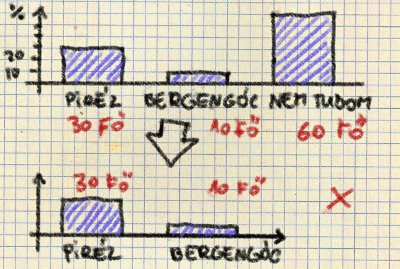 %
20
10
PIRÉZ BERGENGÓC NEM TUDOM
30 FŐ 10 FŐ 60 FŐ
30 FŐ 10 FŐ
PIRÉZ BERGENGÓC